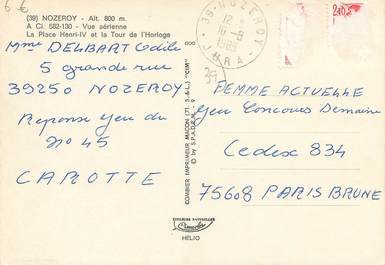 6 €
(39) NOZEROY - Alt. 800 m.
A Cl. 582-130 - Vue aérienne
La Place Henri-IV et la Tour de l'Horloge
Mme DELBART Odile
5 grande rue
39250 NOZEROY
Reponse jeu du
n° 45
CAROTTE
COMBIER IMPRIMEUR MACON (71. S.-&-L.) "CIM"
© by S.P.A.D.E.M. - 9
39 - NOZEROY
12 H
16-8
1985
JURA
39
2,10
FEMME ACTUELLE
Jeu Concours Demaine
Cedex 834
75608 PARIS BRUNE
Combier
HELIO